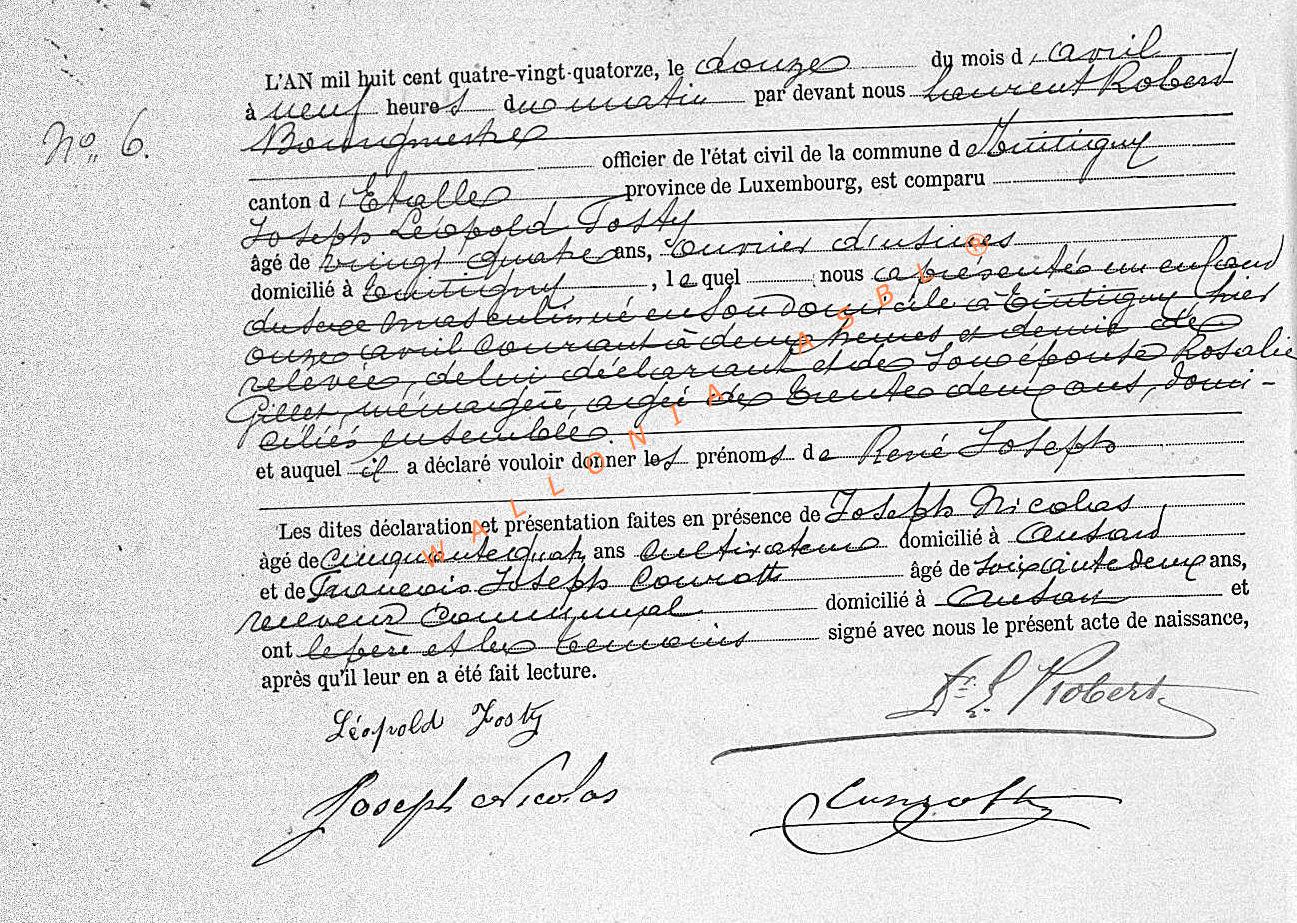 L'AN mil huit cent quatre-vingt-quatorze, le douze du mois d'avril
à neuf heures du matin par devant nous Laurent Robert
No 6.
Bourgmestre
officier de l'état civil de la commune de Tintigny
canton d'Etalle province de Luxembourg, est comparu
Joseph Léopold Tosty
âgé de vingt quatre ans, ouvrier d'usines
domicilié à Tintigny, lequel nous a présenté un enfant
du sexe masculin né en son domicile à Tintigny hier
onze avril courant à deux heures et demie de
relevée, de lui déclarant et de son épouse Rosalie
Gillet, ménagère, agée de trente deux ans, domi-
ciliés ensemble.
et auquel il a déclaré vouloir donner les prénoms de René Joseph
Les dites déclaration et présentation faites en présence de Joseph Nicolas
âgé de cinquante quatre ans cultivateur domicilié à Ansart
et de François Joseph âgé de soixante deux ans,
receveur communal domicilié à Ansart et
ont le père et les témoins signé avec nous le présent acte de naissance,
après qu'il leur en a été fait lecture.
Dr L. Robert
Léopold Tosty
Joseph Nicolas
WALLONIA ASBL ®